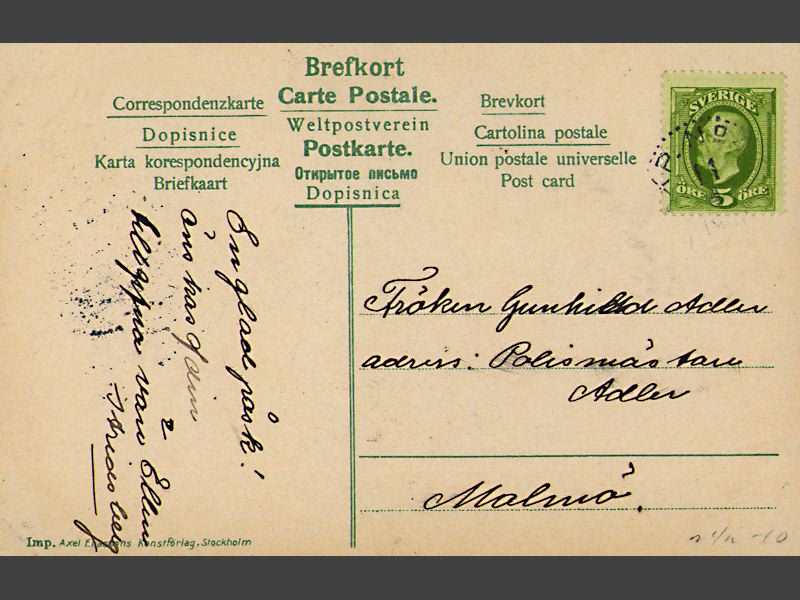 Brefkort
Carte Postale.
Weltpostverein
Postkarte.
Открытое письмо
Dopisnica
Correspondenzkarte
Dopisnice
Karta korespondencyjna
Briefkaart
Brevkort
Cartolina postale
Union postale universelle
Post card
SVERIGE
ÖRE 5 ÖRE
En glad påsk!
önskas dem
vän Ellen
Fröken Gunhild Adler
adress: Polismästare
Adler
Malmö.
Imp. Axel Eliassons Konstförlag, Stockholm